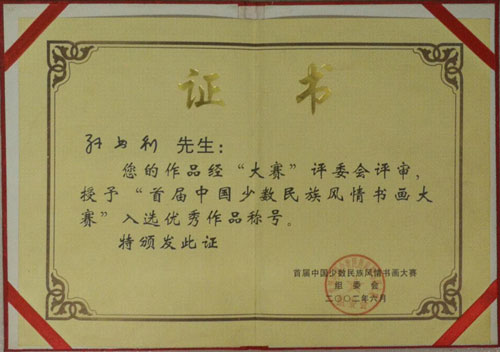 证书
孙与利 先生：
您的作品经“大赛”评委会评审，
授予“首届中国少数民族风情书画大
赛”入选优秀作品称号。
特颁发此证
首届中国少数民族风情书画大赛
组委会
二〇〇二年六月